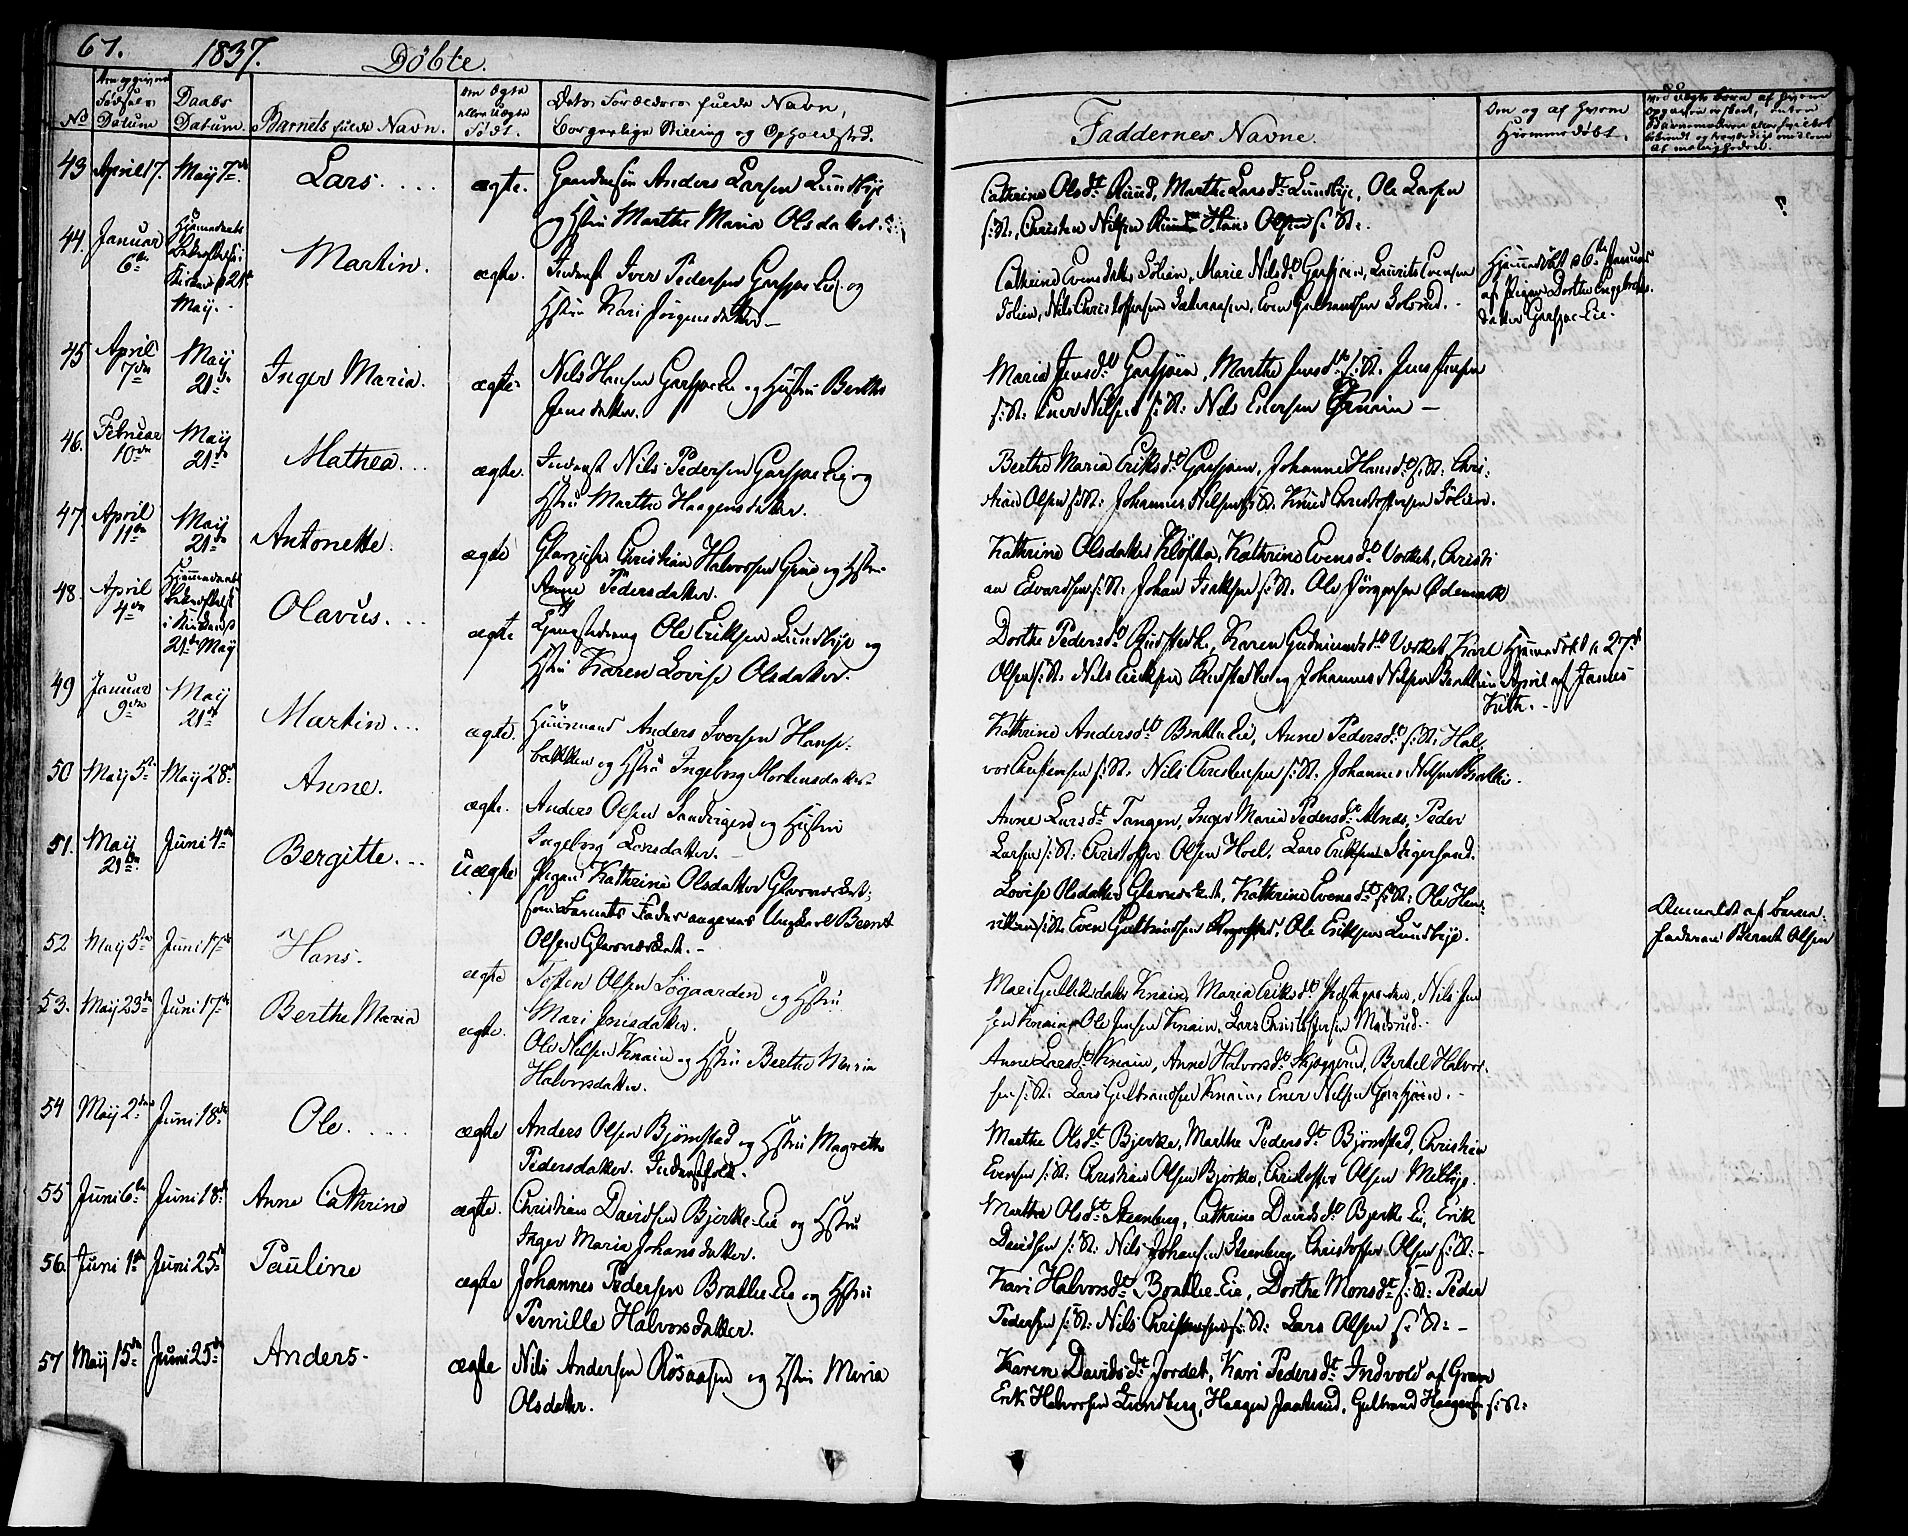 61. 1837. Døbte.
No
Fødsels Datum
Daabs Datum.
Barnets fulde Navn.
om Ægte eller Uægte Født.
Forældres fulde Navn,
borgerlige Stilling og Opholdsted.
Faddernes Navne.
Om og af hvem
Hjemmedøbt.
43 April 17. May 7de Lars. ægte. Gaardmand Anders Larsen Lundbye
og Hstru Marthe Maria Olsdatter.
Cathrine Olsdt Ruud, Marthe Larsdt Lundbye, Ole Larsen
s: St., Christen Nilsen Ruud Hans Olsen s: St.
44. Januar 6te Hjemmedaabs Bekræftelse i Kirken d 21de May. Martin. ægte. Inderst Iver Pedersen Garsjøe Eie og
Hstru Kari Jørgensdatter
Cathrine Evensdatter Solien, Marie Nilsdt Garsjøen, Laurits Evensen
Solien, Nils Christophersen, Even Gulbrandsen
Hjemmedøbt d 6te Januar
af Pigen Dorthe Engebrets
datter Garsjøe-Eie.
45 April 7de May 21de Inger Maria. ægte Nils Hansen Garsjøe Eie og Hustru Berthe
Jensdatter.
Maria Jensdt Garsjøen, Marthe Jensdt s: St. Jens Jensen
s: St: Ener Nilsen s: St: Nils Enersen
46. Februar 10de May 21de Mathea. ægte. Inderst Nils Pedersen Garsjøe Eie og
Hstru Marthe Haagensdatter.
Berthe Maria Eriksdt Garsjøen, Johanne Hansdt s: St: Chri-
stian Olsen s: St: Johannes Nilsen s: St. Knud Christophersen Solien.
47. April 11te May 21de Antonette. ægte Christian Halvorsen og Hstru
Anne Pedersdatter.
Kathrine Olsdatter Kløfta, Kathrine Evensdt Verket, Christi
an Edvardsen s: St. Johan Isaksen s: St. Ole Jørgensen Ødemark
48. April 4de Hjemmedaabs Bekræftelse i Kirken d 21de May Olavus. ægte Ole Eriksen Lundbye og
Hstru Karen Lovise Olsdatter.
Dorthe Pedersdt, Karen Gudmundsdt Verket, Karl
Olsen s: St. Nils Eriksen og Johannes Nilsen
Hjemmedøbt d. 27de
April af
49 Januar 9de May 21de Martin ægte. Huusmand Anders Iversen Hanse-
bakken og Hstru Ingeborg Mortensdatter
Kathrine Andersdt Bratlie Eie, Anne Pedersdt s: St: Hal-
vor s: St. Nils Christensen s: St. Johannes Nilsen Bratlie.
50 May 5te May 28de Anne. ægte. Anders Olsen og Hustru
Ingeborg Larsdatter.
Anne Larsdt Tangen, Inger Maria Pedersdt Alnæs, Peder
Larsen s: St: Christopher Olsen Hoel, Lars Eriksen
51. May 21de Juni 4de Bergitte. Uægte Pigen Kathrine Olsdatter Glasværket;
som Barnets Fader angives Ungkarl Bernt
Olsen Glasværket.
Lovise Olsdatter Glasværket, Kathrine Evensdt s: St: Ole Hen-
riksen s: St. Even Gulbrandsen, Ole Eriksen Lundbye.
Anmeldt af Barne-
faderen Bernt Olsen
52 May 5te Juni 17de Hans. ægte Olsen Søgaarden og Hstru
Mari Jensdatter.
Mari Gulliksdatter Knain, Maria Eriksdt, Nils Jen
sen Knain, Ole Jensen Knain, Lars Christophersen
53. May 23de Juni 17de Berthe Maria ægte. Ole Nilsen Knain og Hstru Berthe Maria
Halvorsdatter.
Anne Larsdt Knain, Anne Halvorsdt, Bertel Halvor-
sen s: St. Lars Gulbrandsen Knain, Ener Nilsen Garsjøen.
54 May 2den Juni 18de Ole. ægte Anders Olsen Bjørnstad og Hstru Magrethe
Pedersdatter. Inderstfolk.
Marthe Olsdt Bjerke, Marthe Pedersdt Bjørnstad, Christian
Evensen s: St: Christian Olsen Bjerke, Christopher Olsen Melbye.
55 Juni 6te Juni 18de Anne Cathrine ægte. Christian Davidsen Bjerke-Eie og Hstru
Inger Maria Johansdatter.
Marthe Olsdt Steenberg, Cathrine Davidsdt Bjerke Eie, Erik
Davidsen s: St: Nils Johansen Steenberg Christopher Olsen s: St:
56. Juni 1te Juni 25de Pauline ægte Johannes Pedersen Bratlie-Eie og Hstru
Pernille Halvorsdatter.
Kari Halvorsdt Bratlie-Eie, Dorthe Monsdt s: St: Peder
Pedersen s: St: Nils Christensen s: St: Lars Olsen s: St:
57 May 15de Juni 25de Anders ægte Nils Andersen Røsaasen og Hstru Maria
Olsdatter.
Karen Davidsdt Jordet, Kari Pedersdt Indvold af Gran
Erik Halvorsen Lundberg, Haagen, Gulbrand Haagensen s: St: